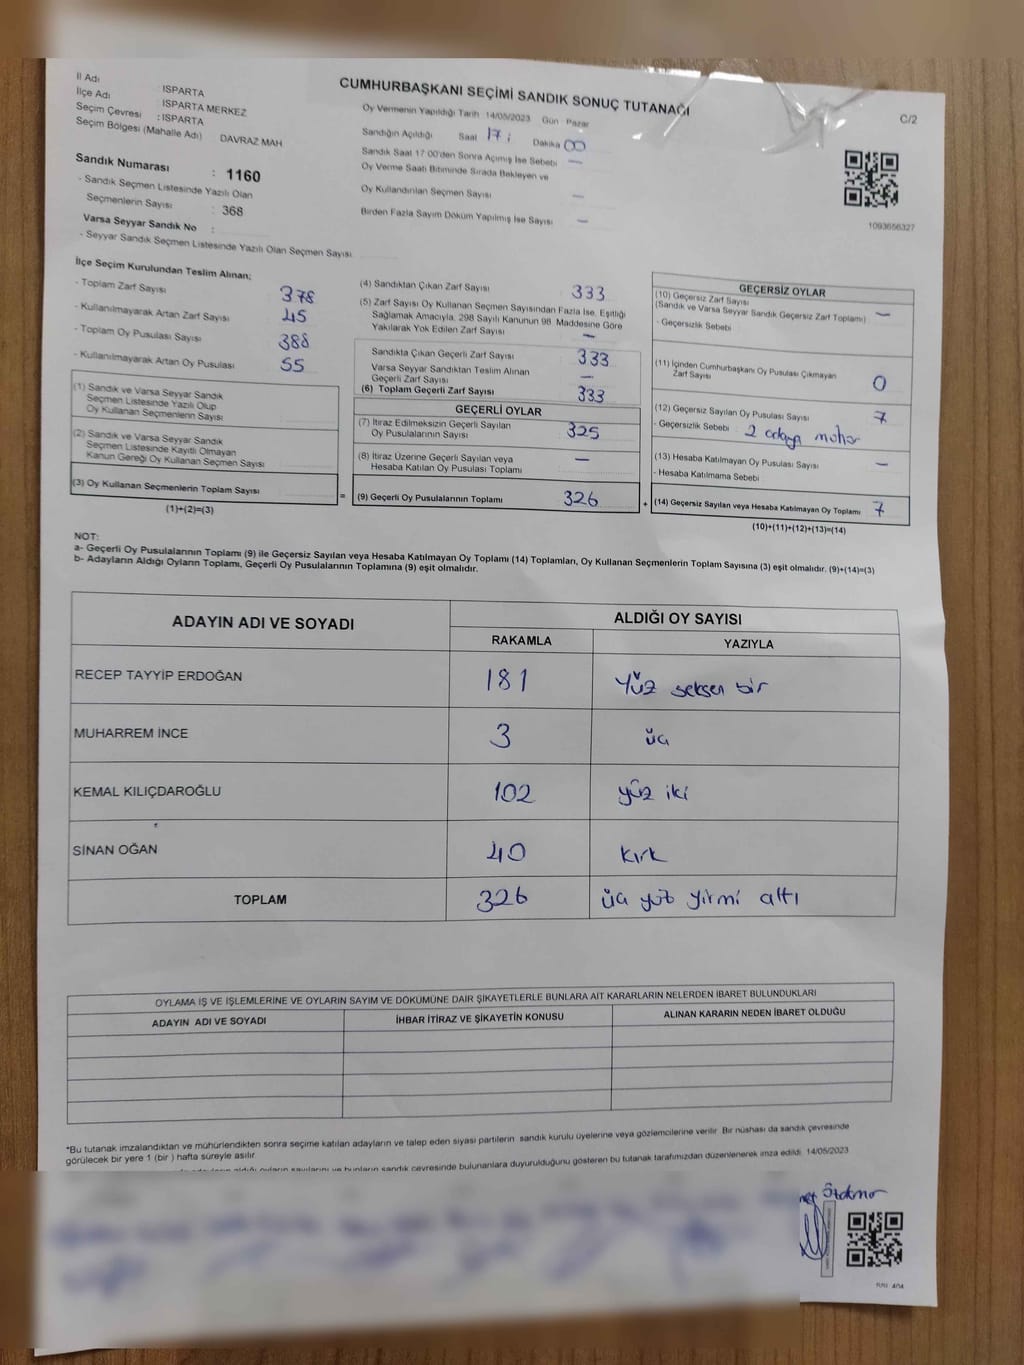 İl Adı : ISPARTA
İlçe Adı : ISPARTA MERKEZ
Seçim Çevresi : ISPARTA
Seçim Bölgesi (Mahalle Adı) DAVRAZ MAH
Sandık Numarası : 1160
- Sandık Seçmen Listesinde Yazılı Olan
Seçmenlerin Sayısı : 368
Varsa Seyyar Sandık No :
- Seyyar Sandık Seçmen Listesinde Yazılı Olan Seçmen Sayısı
CUMHURBAŞKANI SEÇİMİ SANDIK SONUÇ TUTANAĞI
Oy Vermenin Yapıldığı Tarih 14/05/2023 Gün : Pazar
Sandığın Açıldığı Saat 17 : Dakika 00
Sandık Saat 17 00'den Sonra Açımış İse Sebebi —
Oy Verme Saati Bitiminde Sırada Bekleyen ve
Oy Kullandırılan Seçmen Sayısı —
Birden Fazla Sayım Döküm Yapılmış İse Sayısı —
C/2
1093656327
İlçe Seçim Kurulundan Teslim Alınan;
- Toplam Zarf Sayısı 378
- Kullanılmayarak Artan Zarf Sayısı 45
- Toplam Oy Pusulası Sayısı 388
- Kullanılmayarak Artan Oy Pusulası 55
(1) Sandık ve Varsa Seyyar Sandık
Seçmen Listesinde Yazılı Olup
Oy Kullanan Seçmenlerin Sayısı
(2) Sandık ve Varsa Seyyar Sandık
Seçmen Listesinde Kayıtlı Olmayan
Kanun Gereği Oy Kullanan Seçmen Sayısı
(3) Oy Kullanan Seçmenlerin Toplam Sayısı
(1)+(2)=(3)
=
(4) Sandıktan Çıkan Zarf Sayısı 333
(5) Zarf Sayısı Oy Kullanan Seçmen Sayısından Fazla İse, Eşitliği
Sağlamak Amacıyla, 298 Sayılı Kanunun 98. Maddesine Göre
Yakılarak Yok Edilen Zarf Sayısı —
Sandıkta Çıkan Geçerli Zarf Sayısı 333
Varsa Seyyar Sandıktan Teslim Alınan
Geçerli Zarf Sayısı —
(6) Toplam Geçerli Zarf Sayısı 333
GEÇERLİ OYLAR
(7) İtiraz Edilmeksizin Geçerli Sayılan
Oy Pusulalarının Sayısı 325
(8) İtiraz Üzerine Geçerli Sayılan veya
Hesaba Katılan Oy Pusulası Toplamı —
(9) Geçerli Oy Pusulalarının Toplamı 326
+
GEÇERSİZ OYLAR
(10) Geçersiz Zarf Sayısı
(Sandık ve Varsa Seyyar Sandık Geçersiz Zarf Toplamı) —
- Geçersizlik Sebebi
(11) İçinden Cumhurbaşkanı Oy Pusulası Çıkmayan
Zarf Sayısı 0
(12) Geçersiz Sayılan Oy Pusulası Sayısı 7
- Geçersizlik Sebebi 2 adaya mühür
(13) Hesaba Katılmayan Oy Pusulası Sayısı —
- Hesaba Katılmama Sebebi
(14) Geçersiz Sayılan veya Hesaba Katılmayan Oy Toplamı 7
(10)+(11)+(12)+(13)=(14)
NOT:
a- Geçerli Oy Pusulalarının Toplamı (9) ile Geçersiz Sayılan veya Hesaba Katılmayan Oy Toplamı (14) Toplamları, Oy Kullanan Seçmenlerin Toplam Sayısına (3) eşit olmalıdır. (9)+(14)=(3)
b- Adayların Aldığı Oyların Toplamı, Geçerli Oy Pusulalarının Toplamına (9) eşit olmalıdır.
ADAYIN ADI VE SOYADI ALDIĞI OY SAYISI
RAKAMLA YAZIYLA
RECEP TAYYİP ERDOĞAN 181 Yüz seksen bir
MUHARREM İNCE 3 üç
KEMAL KILIÇDAROĞLU 102 yüz iki
SİNAN OĞAN 40 Kırk
TOPLAM 326 üç yüz yirmi altı
OYLAMA İŞ VE İŞLEMLERİNE VE OYLARIN SAYIM VE DÖKÜMÜNE DAİR ŞİKAYETLERLE BUNLARA AİT KARARLARIN NELERDEN İBARET BULUNDUKLARI
ADAYIN ADI VE SOYADI İHBAR İTİRAZ VE ŞİKAYETİN KONUSU ALINAN KARARIN NEDEN İBARET OLDUĞU
*Bu tutanak imzalandıktan ve mühürlendikten sonra seçime katılan adayların ve talep eden siyasi partilerin sandık kurulu üyelerine veya gözlemcilerine verilir. Bir nüshası da sandık çevresinde
görülecek bir yere 1 (bir ) hafta süreyle asılır.
aldığı oyların sayılarını ve bunların sandık çevresinde bulunanlara duyurulduğunu gösteren bu tutanak tarafımızdan düzenlenerek imza edildi. 14/05/2023